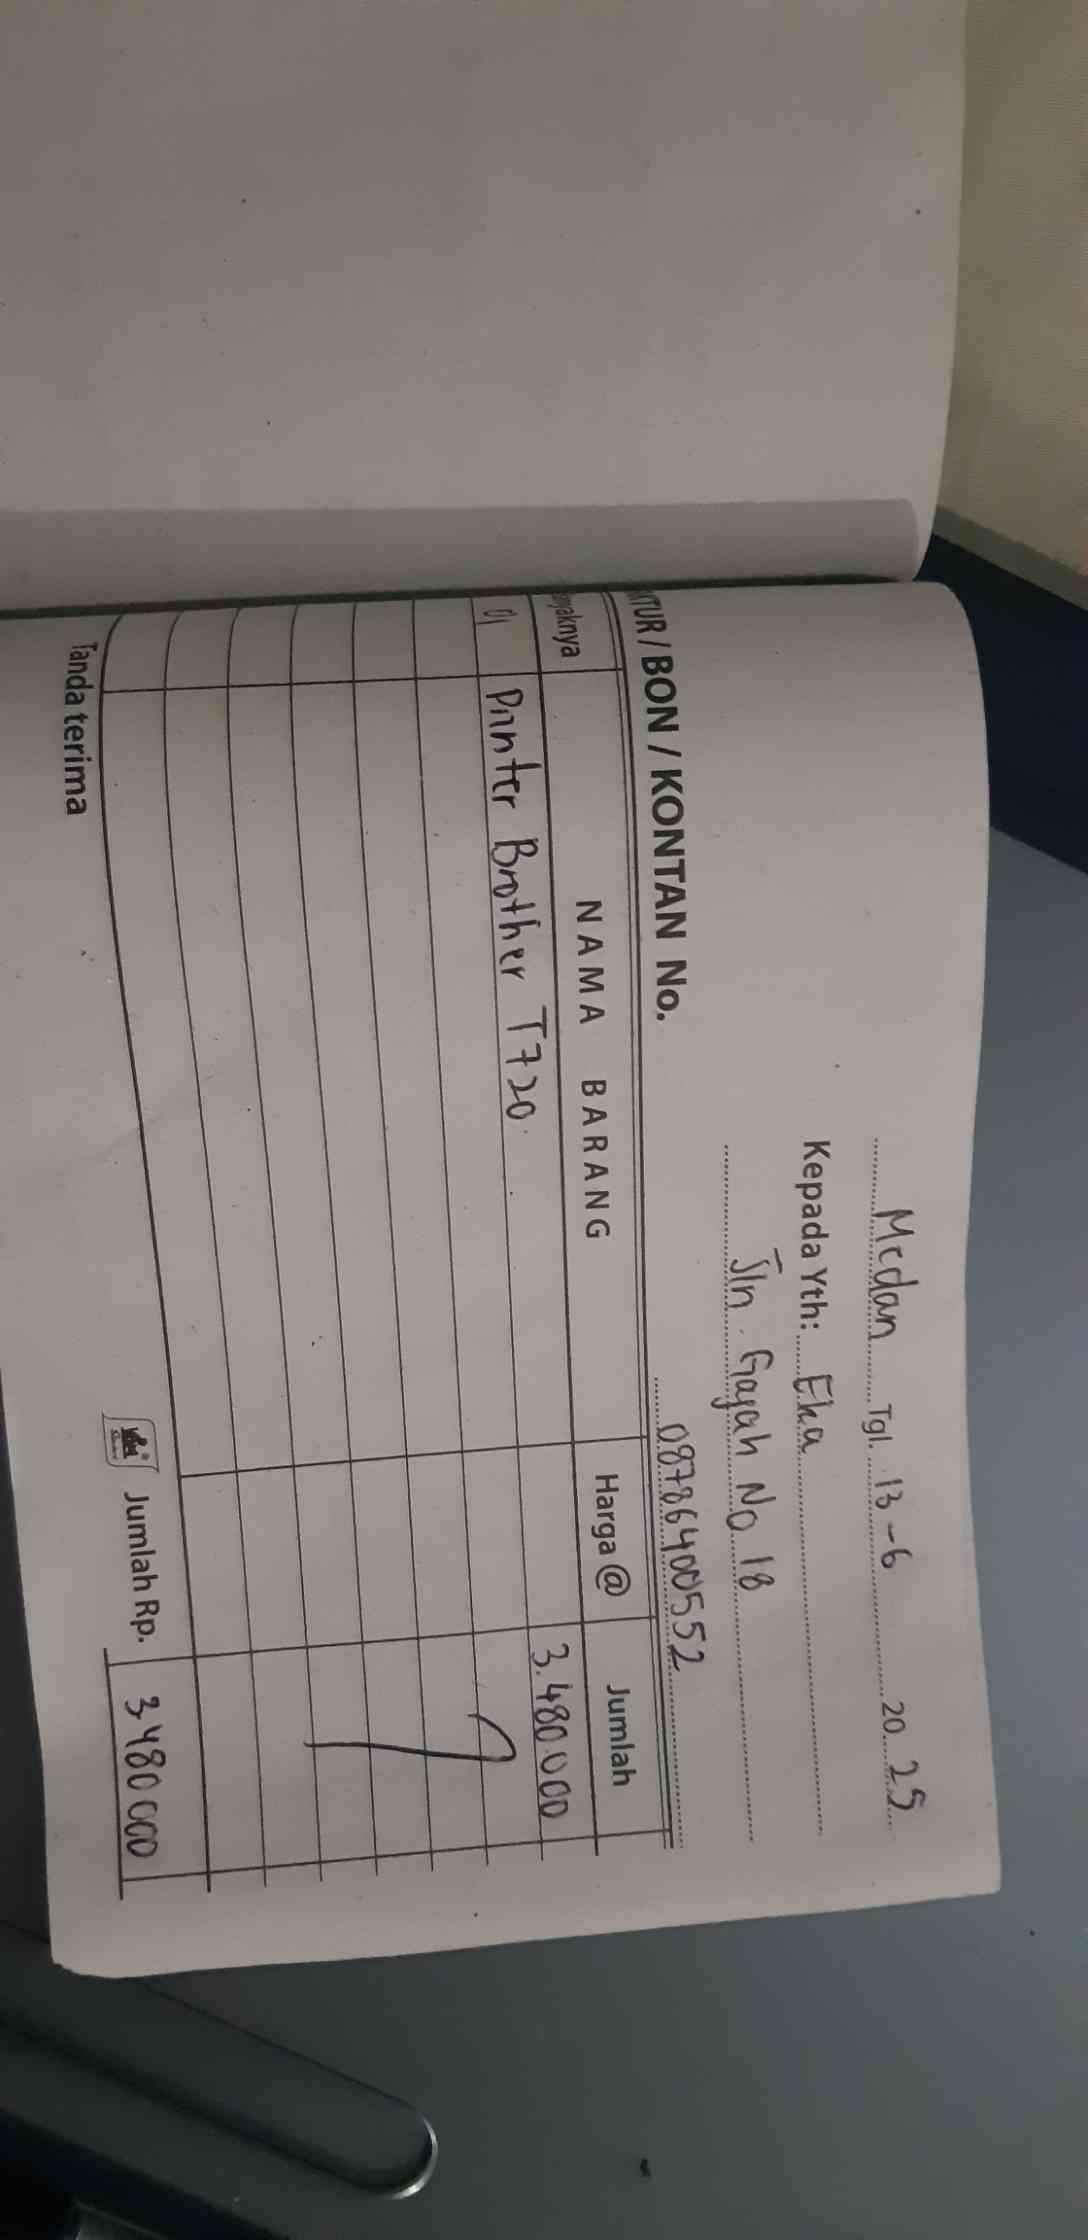 Medan Tgl. 13-6 20 25
Kepada Yth: Eka
Jln. Gajah No 18
08786400552
KTUR / BON / KONTAN No.
anyaknya NAMA BARANG Harga @ Jumlah
01 Printer Brother T720 3.480.000
Tanda terima Jumlah Rp. 3480000